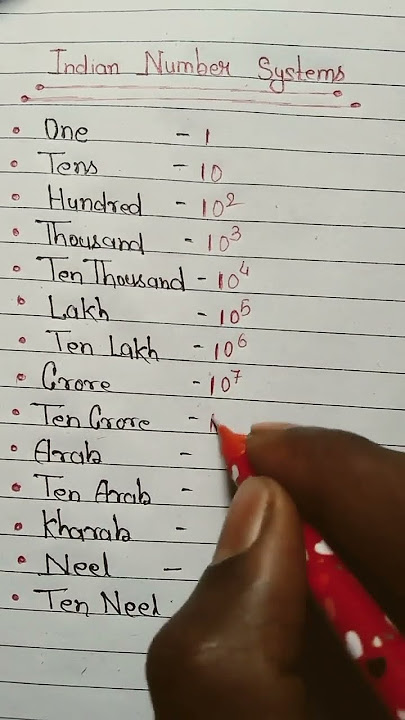 Indian Number Systems
• One - 1
• Tens - 10
• Hundred - 10²
• Thousand - 10³
• Ten Thousand - 10⁴
• Lakh - 10⁵
• Ten Lakh - 10⁶
• Crore - 10⁷
• Ten Crore - 1
• Arab -
• Ten Arab -
• Kharab -
• Neel -
• Ten Neel